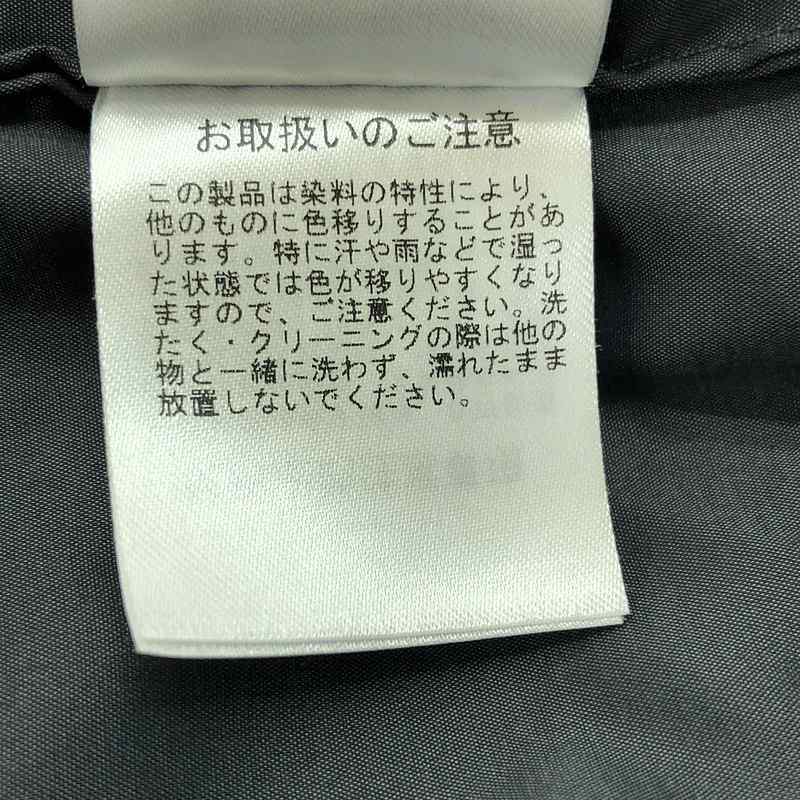 お取扱いのご注意
この製品は染料の特性により、
他のものに色移りすることがあ
ります。特に汗や雨などで湿っ
た状態では色が移りやすくなり
ますので、ご注意ください。洗
たく・クリーニングの際は他の
物と一緒に洗わず、濡れたまま
放置しないでください。